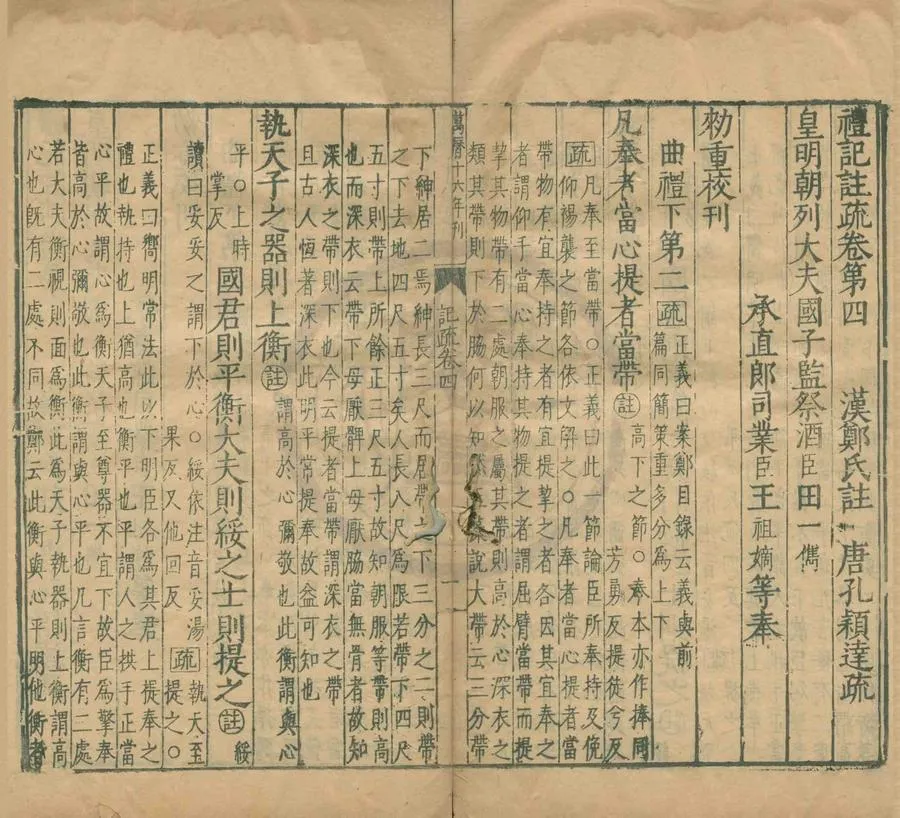 禮記註疏卷第四 漢鄭氏註 唐孔穎達疏
皇明朝列大夫國子監祭酒臣田一儁
承直郎司業臣王祖嫡等奉
勑重校刊
曲禮下第二 疏 正義曰案鄭目錄云義與前篇同簡策重多分爲上下
凡奉者當心提者當帶 註 高下之節○奉本亦作捧同芳勇反提徒兮反
疏 凡奉至當帶○正義曰此一節論臣所奉持及俛
仰裼襲之節各依文解之○凡奉者當心提者當
帶物有宜奉持之者有宜提挈之者各因其宜奉之
者謂仰手當心奉持其物提之者謂屈臂當帶而提
挈其物帶有二處朝服之屬其帶則高於心深衣之
類其帶則下於脇何以知然玉藻說大帶云三分帶
萬曆十六年刊 記疏卷四 一
下紳居二焉紳長三尺而居帶之下三分之二則帶
之下去地四尺五寸矣人長八尺爲限若帶下四尺
五寸則帶上所餘正三尺五寸故知朝服等帶則高
也而深衣云帶下毋厭髀上毋厭脇當無骨者故知
深衣之帶則下也今云提者當帶謂深衣之帶
且古人恆著深衣此明平常提奉故益可知也
執天子之器則上衡 註 謂高於心彌敬也此衡謂與心
平○上時掌反 國君則平衡大夫則綏之士則提之 註 綏
讀曰妥妥之謂下於心○綏依注音妥湯果反又他回反 疏 執天至提之○
正義曰嚮明常法此以下明臣各爲其君上提奉之
禮也執持也上猶高也衡平也平謂人之拱手正當
心平故謂心爲衡天子至尊器不宜下故臣爲擎奉
皆高於心彌敬也此衡謂與心平也凡言衡有二處
若大夫衡視則面爲衡此爲天子執器則上衡謂高
心也旣有二處不同故鄭云此衡與心平明他衡者